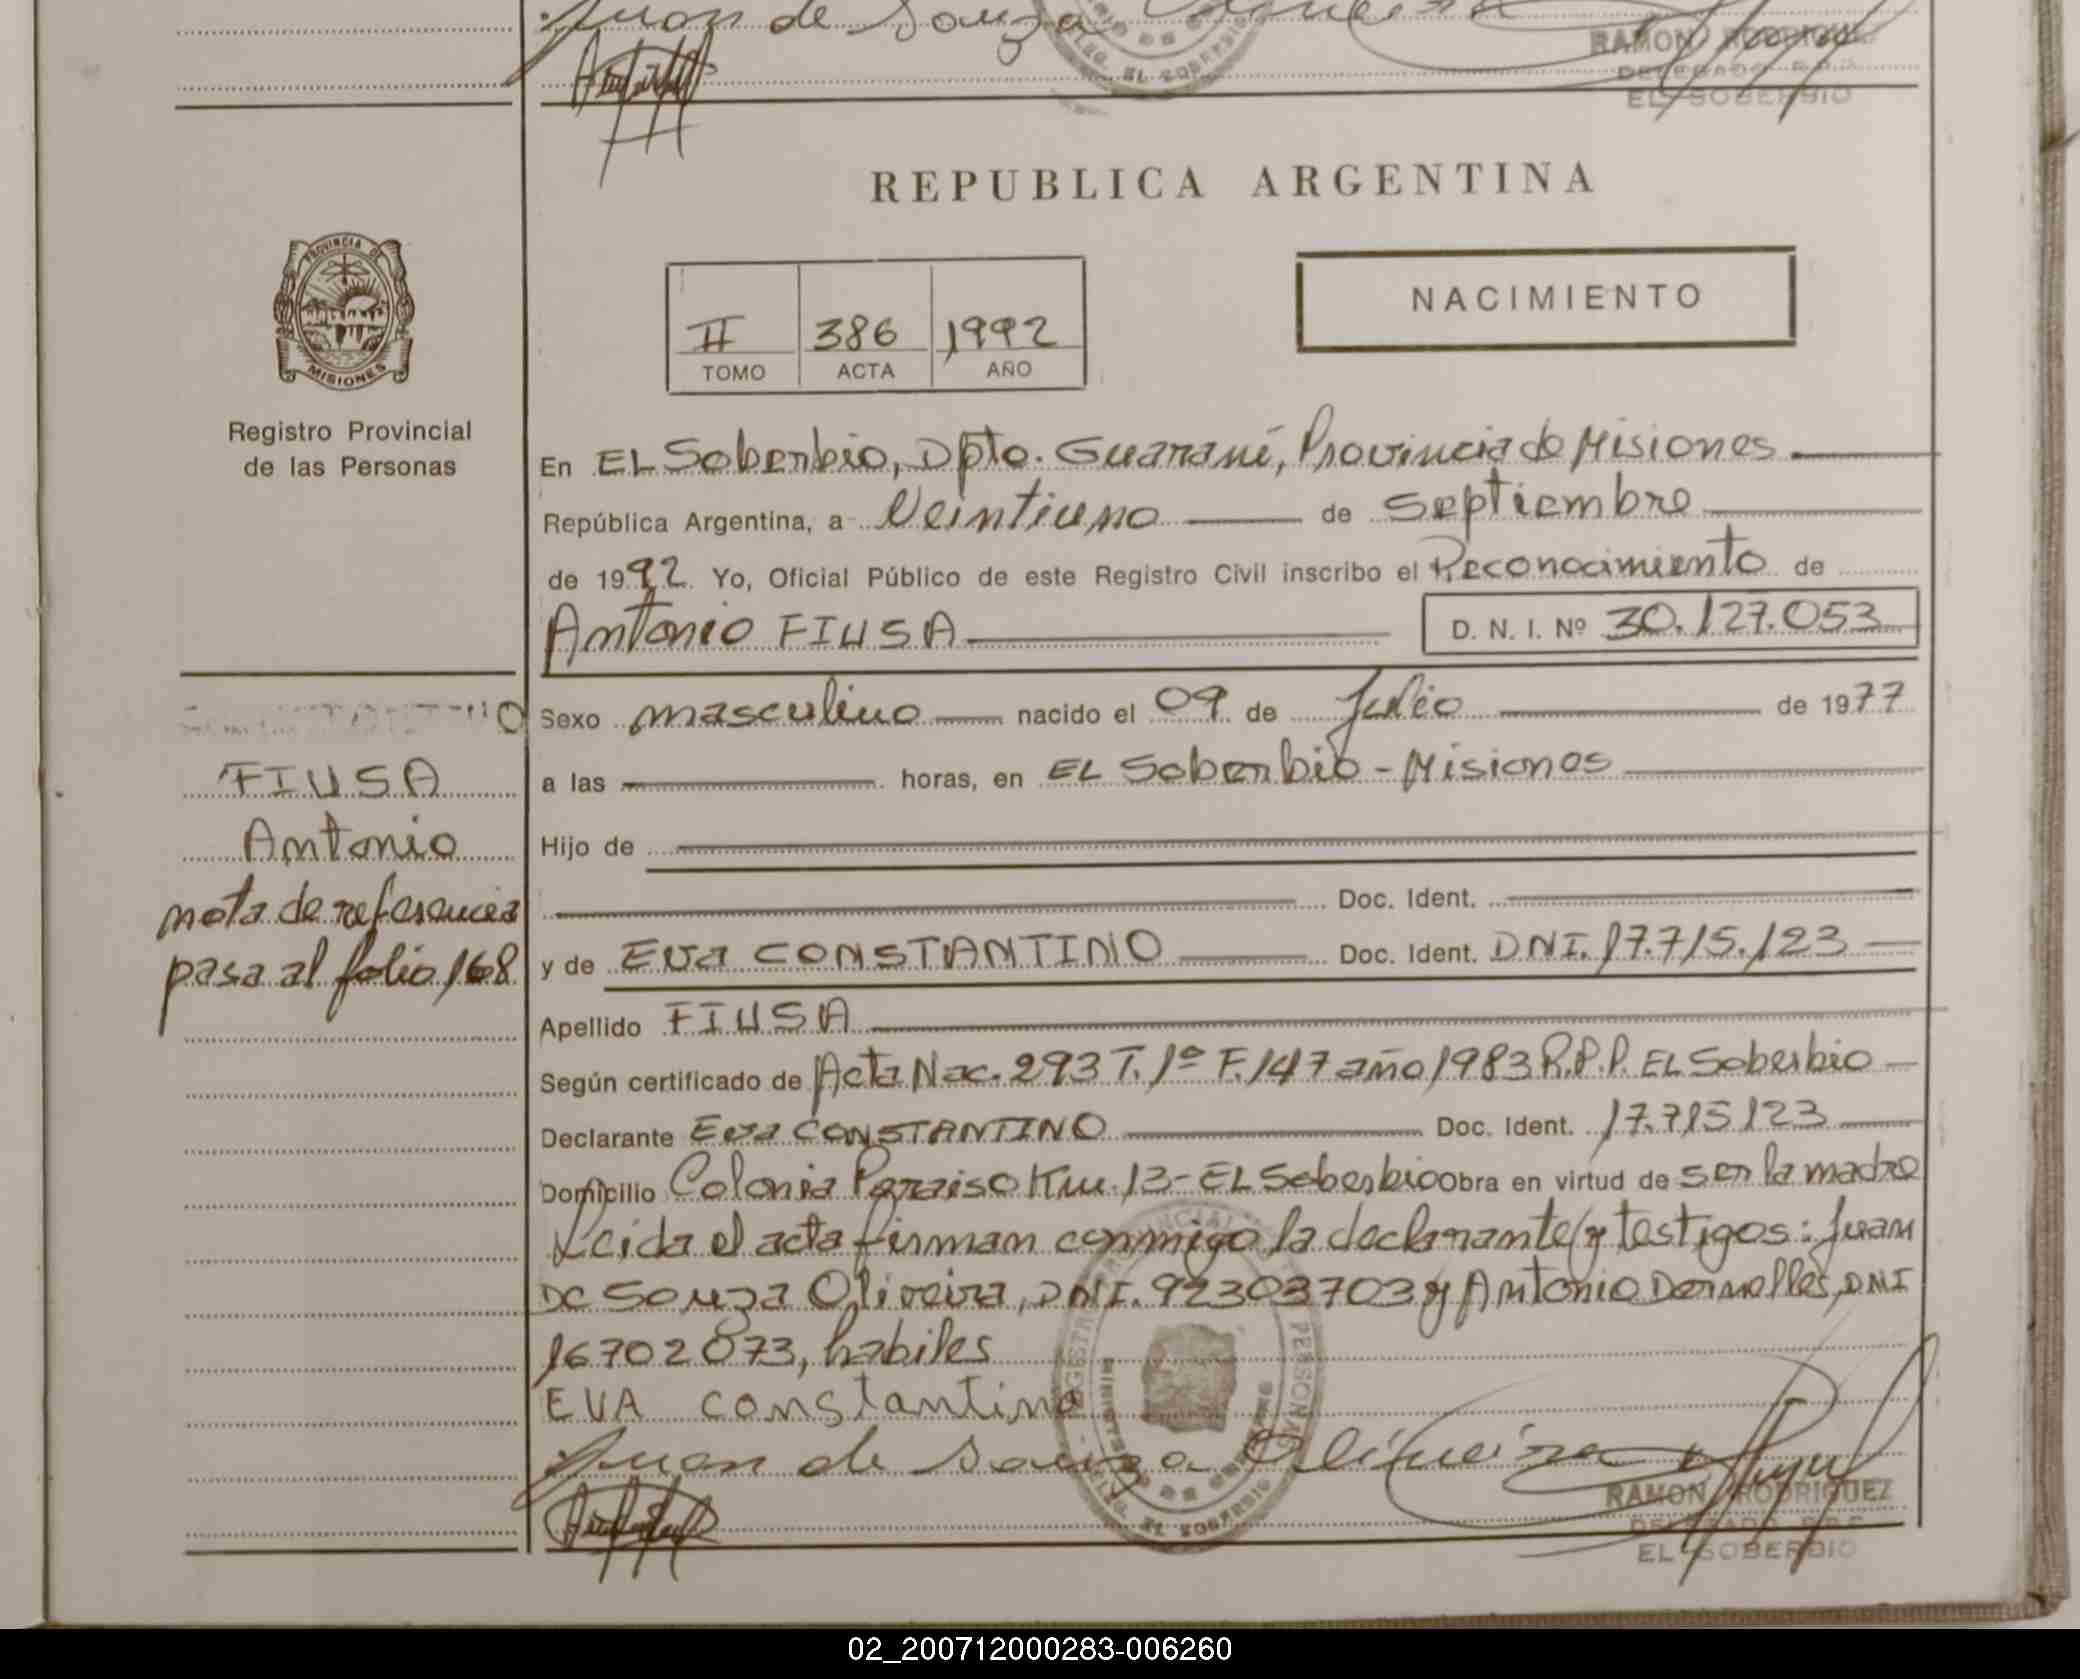 Juan de Souza Oliveira
RAMON RODRIGUEZ
DELEGADO R.P.P.
EL SOBERBIO
REPUBLICA ARGENTINA
PROVINCIA DE
MISIONES
Registro Provincial
de las Personas
NACIMIENTO
II 386 1992
TOMO ACTA AÑO
En EL Soberbio, Dpto. Guaraní, Provincia de Misiones
República Argentina, a Veintiuno de Septiembre
de 1992. Yo, Oficial Público de este Registro Civil inscribo el Reconocimiento de
Antonio FIUSA D. N. I. Nº 30.127.053
Sexo masculino nacido el 09 de Julio de 1977
a las horas, en EL Soberbio - Misiones
Hijo de
Doc. Ident.
y de Eva CONSTANTINO Doc. Ident. DNI. 17.715.123
Apellido FIUSA
Según certificado de Acta Nac. 293 T. 1º F. 147 año 1983 R.P.P. EL Soberbio
Declarante Eva CONSTANTINO Doc. Ident. 17.715.123
Domicilio Colonia Paraiso Km. 13 - EL Soberbio Obra en virtud de ser la madre
Leida el acta firman conmigo la declarante y testigos: Juan
De Souza Oliveira, DNI. 92303703 y Antonio Dornelles, DNI
16702073, habiles
EVA constantino
Juan de Souza Oliveira
RAMON RODRIGUEZ
DELEGADO R.P.P.
EL SOBERBIO
FIUSA
Antonio
nota de referencia
pasa al folio 168
02_200712000283-006260